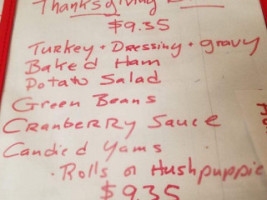 Thanksgiving
$9.35
Turkey • Dressing • gravy
Baked Ham
Potato Salad
Green Beans
Cranberry Sauce
Candied Yams
• Rolls or Hushpuppie
$9.35